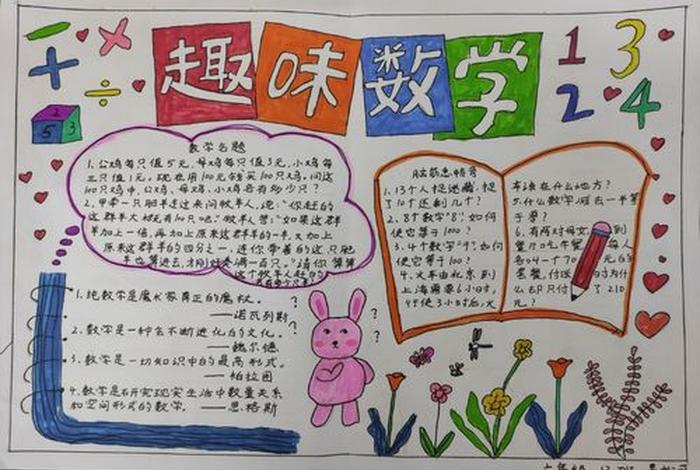 趣味数学
1 3
2 4
2
5 3
数学名题
1、公鸡每只值5元，母鸡每只值3元，小鸡每
三只值1元。现在用100元钱买100只鸡。问这
100只鸡中，公鸡、母鸡、小鸡各有多少只？
2、甲牵一只肥羊走过来问牧羊人说：“你赶的
这群羊大概有100只吧”牧羊人答：“如果这群
羊加上一倍，再加上原来这群羊的一半，又加上
原来这群羊的四分之一，连你牵着的这只肥
羊也算进去，才刚好凑满一百只。”请你算算
这个牧羊人赶的
1、纯数学是魔术家真正的魔杖。
——诺瓦列斯
2、数学是一种会不断进化的文化。
——魏尔德
3、数学是一切知识中的最高形式。
——柏拉图
4、数学是研究现实生活中数量关系
和空间形式的数学。——恩格斯
? ? ? ?
脑筋急转弯
1、13个人捉迷藏，捉
了10个还剩几个？
2、8个数字“8”，如何
使它等于1000？
3、4个数字“9”，如何
使它等于100？
4、火车由北京到
上海需要6小时，
行使3小时后，火
车该在什么地方？
5、什么数字减去一半等
于零？
6、有两对母女 到
餐厅吃午餐 每人
各叫一个70元的
套餐，付 时为什
么却只付了210
元？